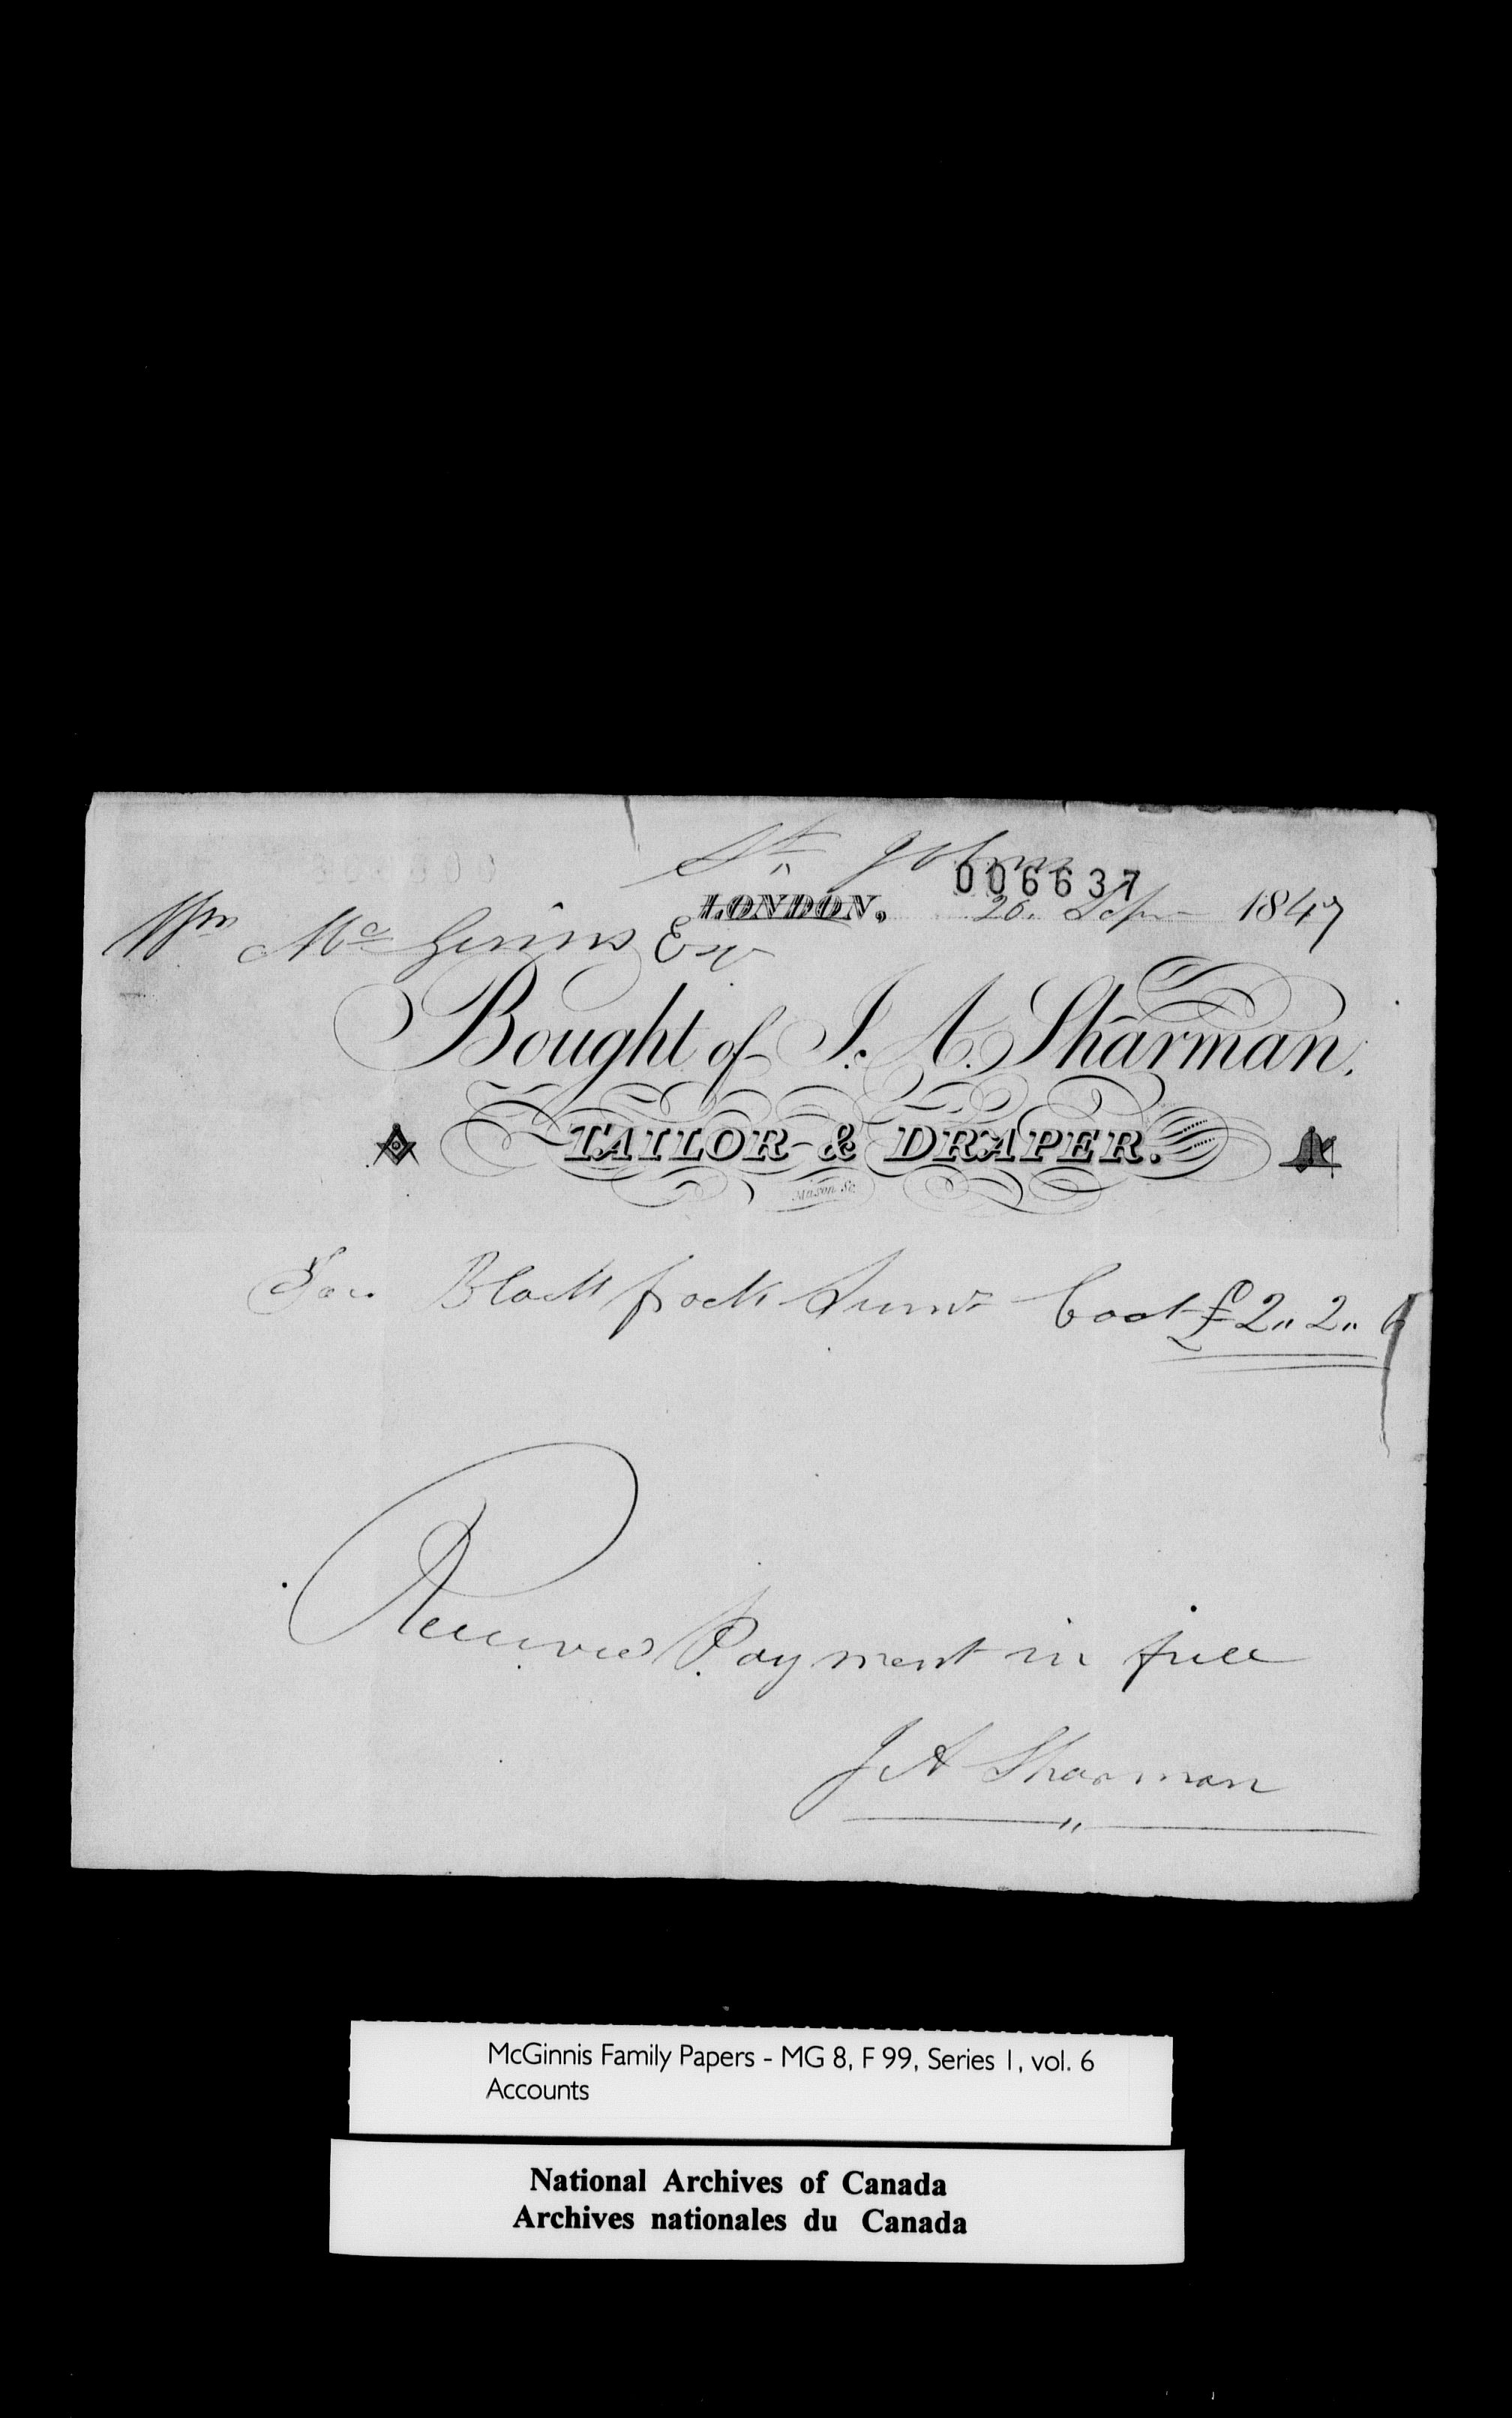 St Johns
006637
LONDON, 20. Sepr 1847
Wm Mc Ginnis Esqr
Bought of J. A. Sharman,
TAILOR & DRAPER.
Mason Sc
For Black frock Coat £2,, 2,, 6
Received Payment in full
J A Sharman
McGinnis Family Papers - MG 8, F 99, Series 1, vol. 6
Accounts
National Archives of Canada
Archives nationales du Canada